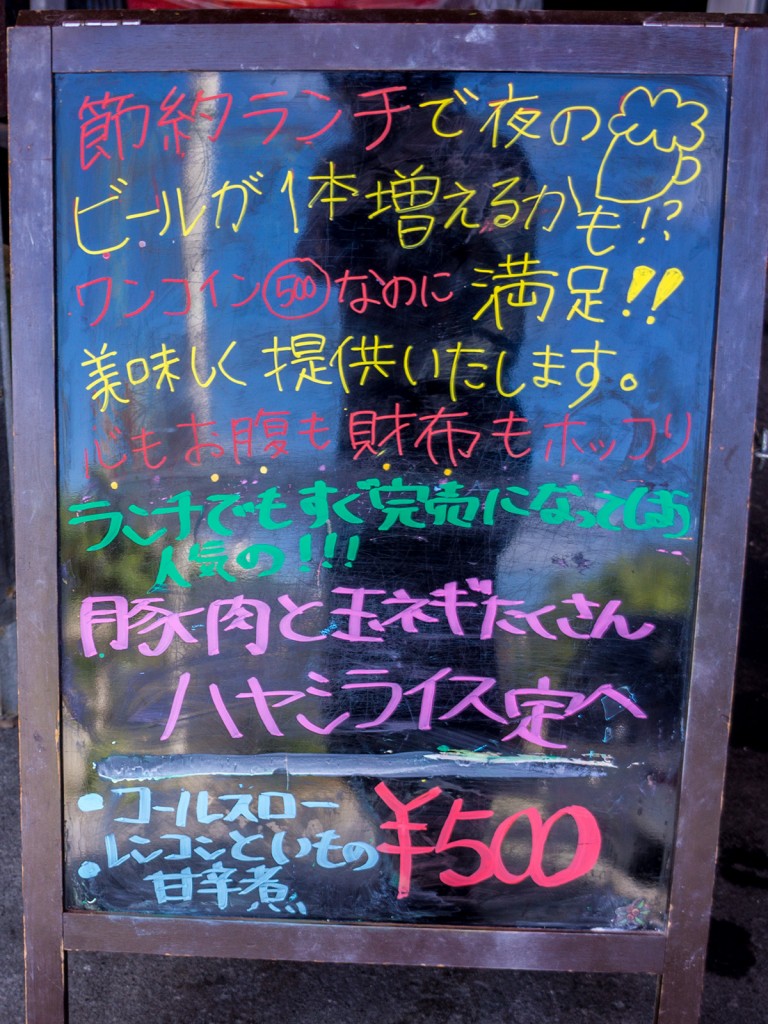 節約ランチで夜の
ビールが1本増えるかも!?
ワンコイン500なのに満足!!
美味しく提供いたします。
心もお腹も財布もホッコリ
ランチでもすぐ完売になってしまう
人気の!!!
豚肉と玉ネギたくさん
ハヤシライス定へ
・コールスロー
・レンコンといもの
甘辛煮
¥500